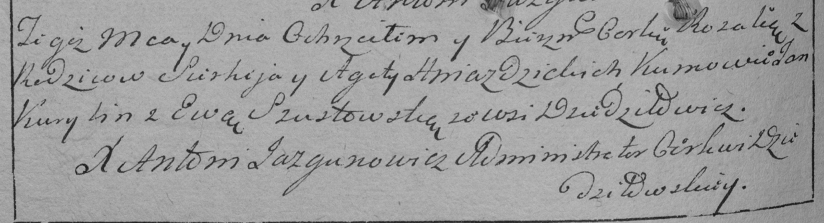 X Antoni Jazgun
Tegoż Mca y Dnia Ochrzciłem y Bierzm Corkę Rozalię z
Rodzicow Sierhija y Agaty Hniazdzickich Kumowie Jan
Kurylin z Ewą Szustowską zowsi Dziedziłowicz.
X Antoni Jazgunowicz Administrator Cerkwi Dzie
dziłowskiey.